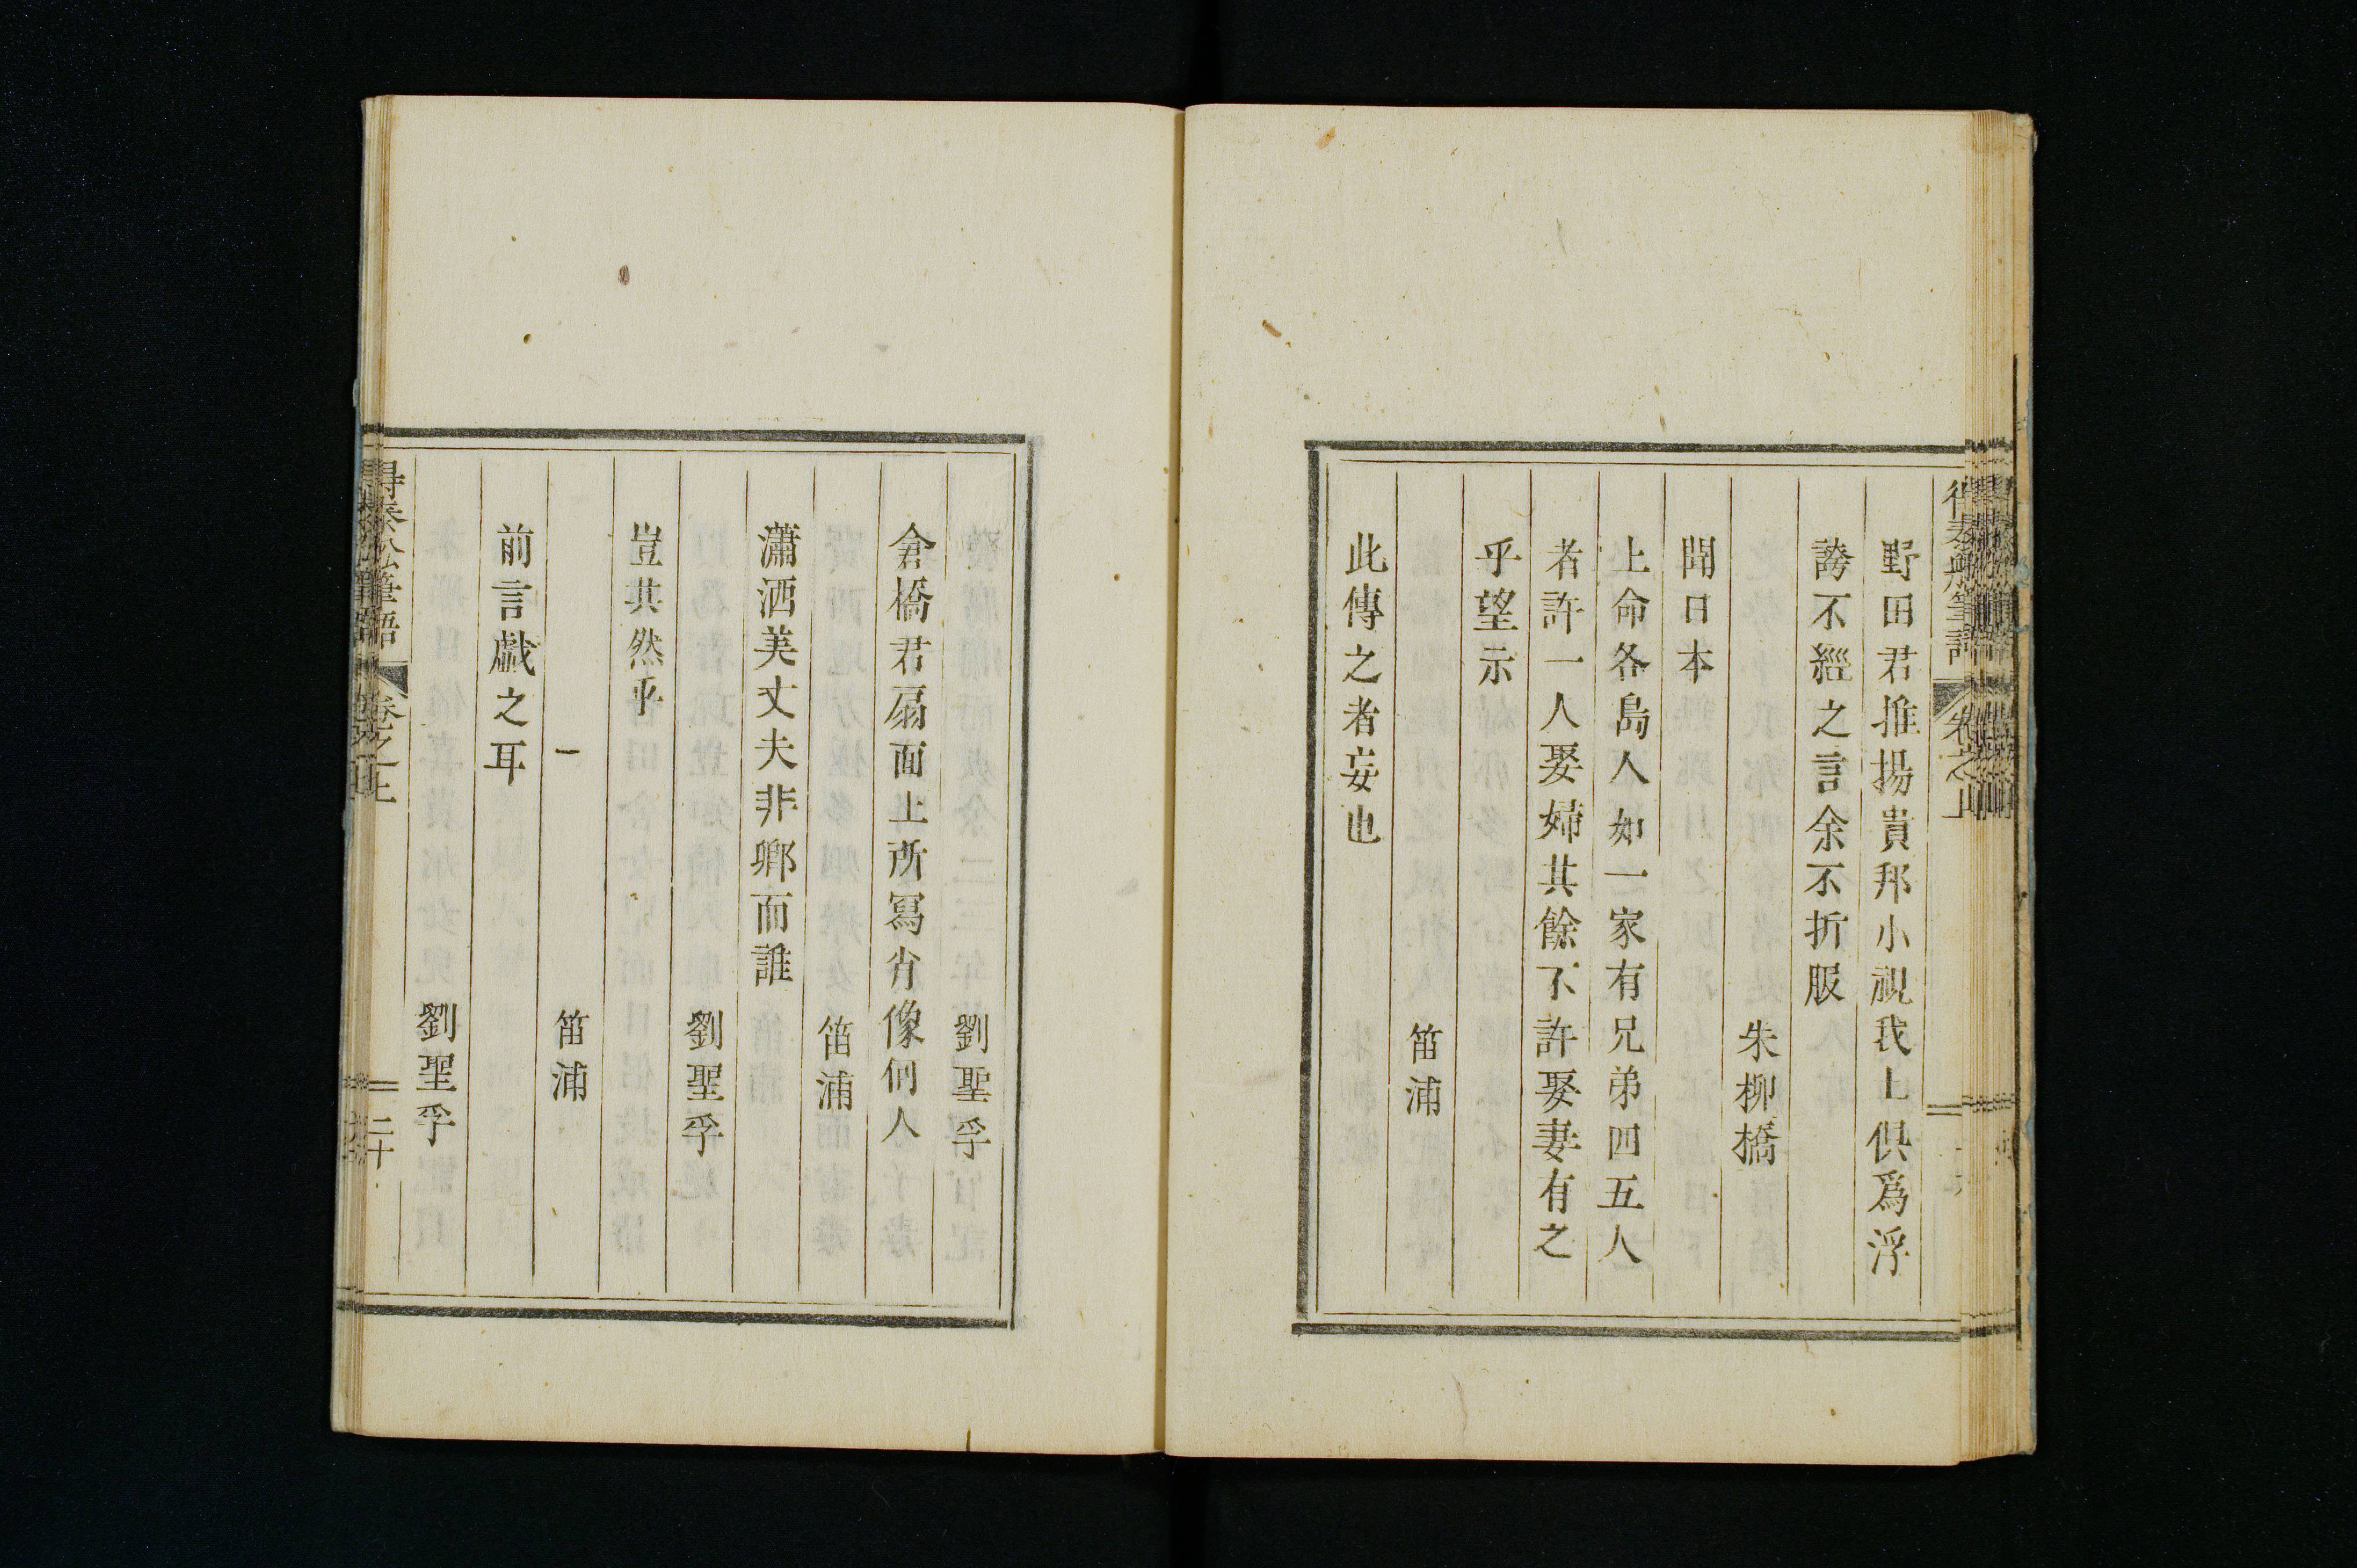 野田君推揚貴邦小視我上俱爲浮
誇不經之言余不折服
朱柳橋
聞日本
上命各島人如一家有兄弟四五人
者許一人娶婦其餘不許娶妻有之
乎望示
笛浦
此傳之者妄也
劉聖孚
倉橋君扇面上所寫肖像何人
笛浦
瀟洒美丈夫非鄕而誰
劉聖孚
豈其然乎
笛浦
前言戲之耳
劉聖孚
得泰舩筆語
卷之上
二十